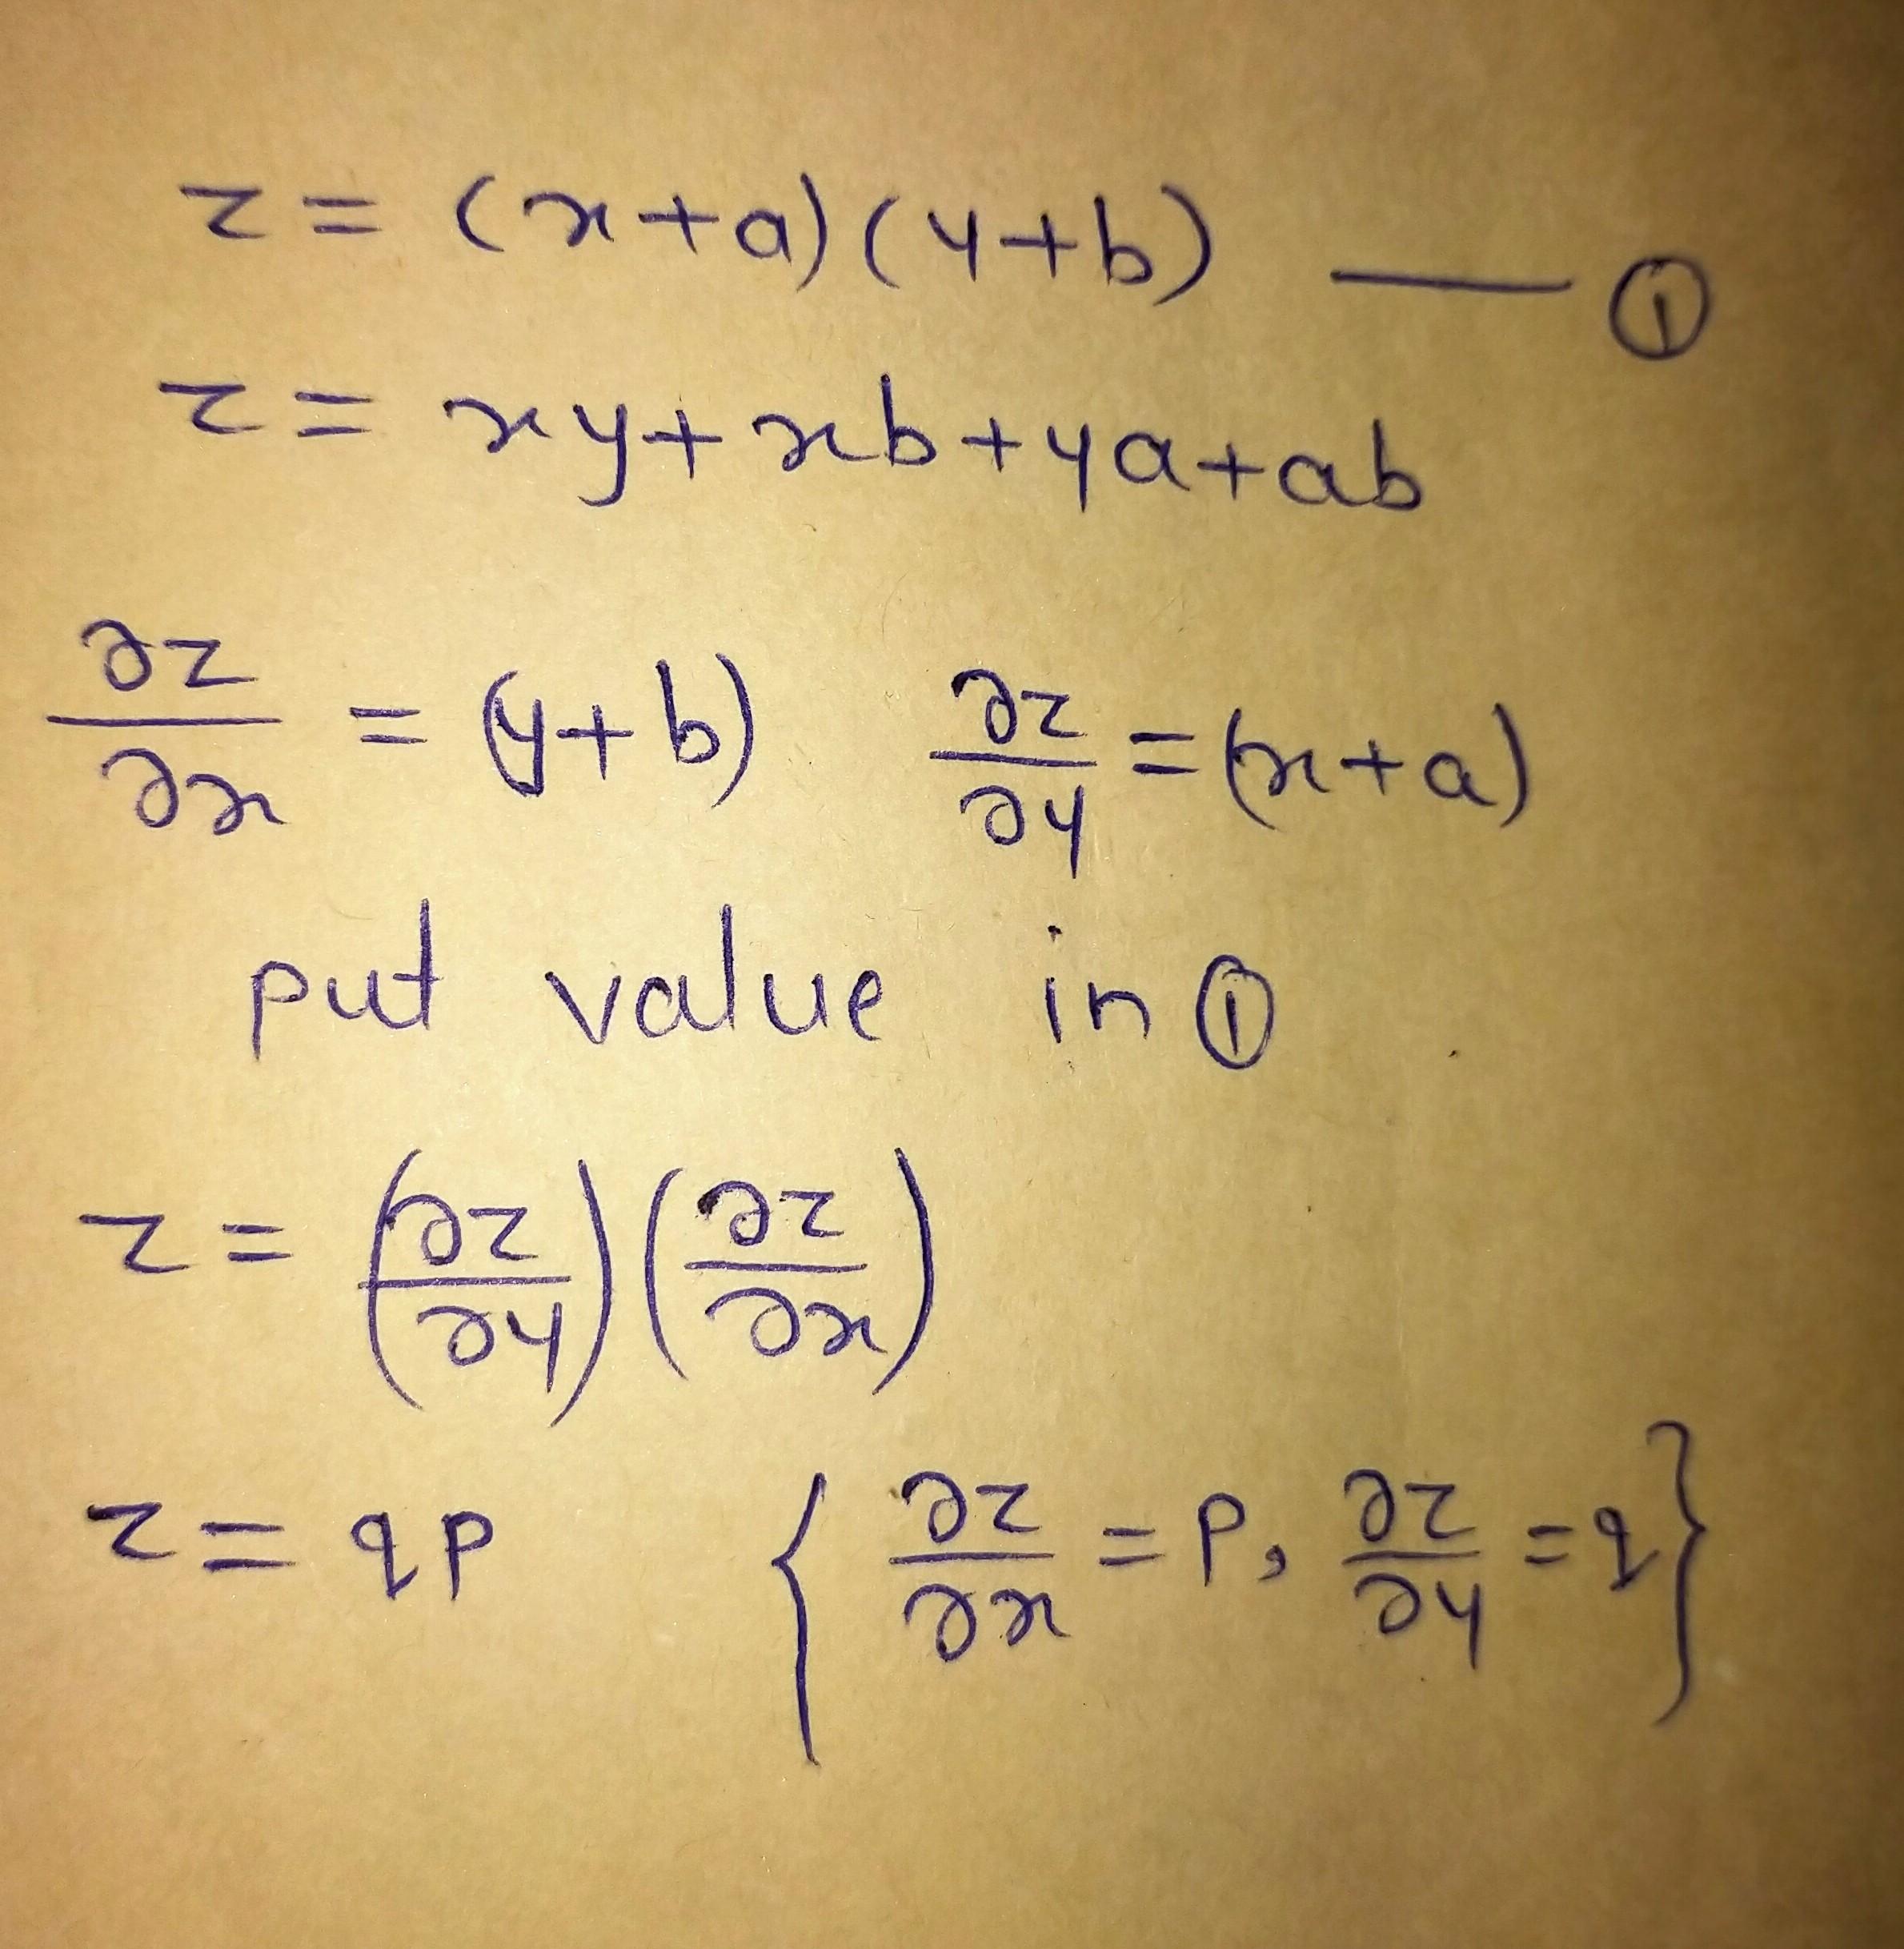 z = (x+a)(y+b) — ①
z = xy+xb+ya+ab
∂z/∂x = (y+b) ∂z/∂y = (x+a)
put value in ①
z = (∂z/∂y)(∂z/∂x)
z = qp {∂z/∂x = p, ∂z/∂y = q}